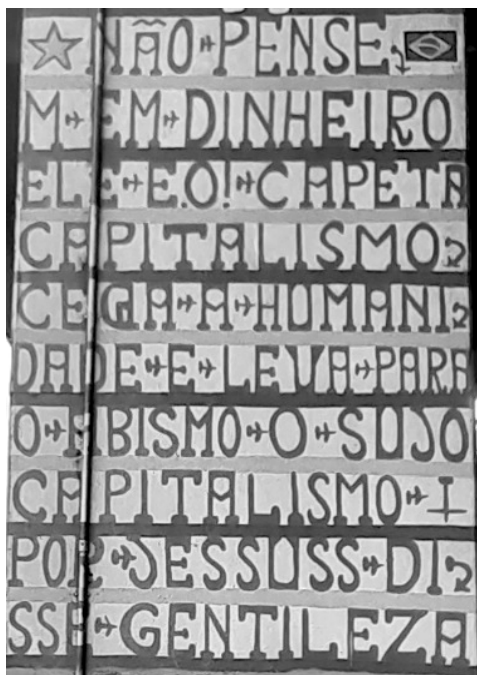 NÃO PENSE
M EM DINHEIRO
ELE E.O! CAPETA
CAPITALISMO
CEGA A HUMANI
DADE E LEVA PARA
O ABISMO O SUJO
CAPITALISMO
POR JESSUSS DI
SSE GENTILEZA